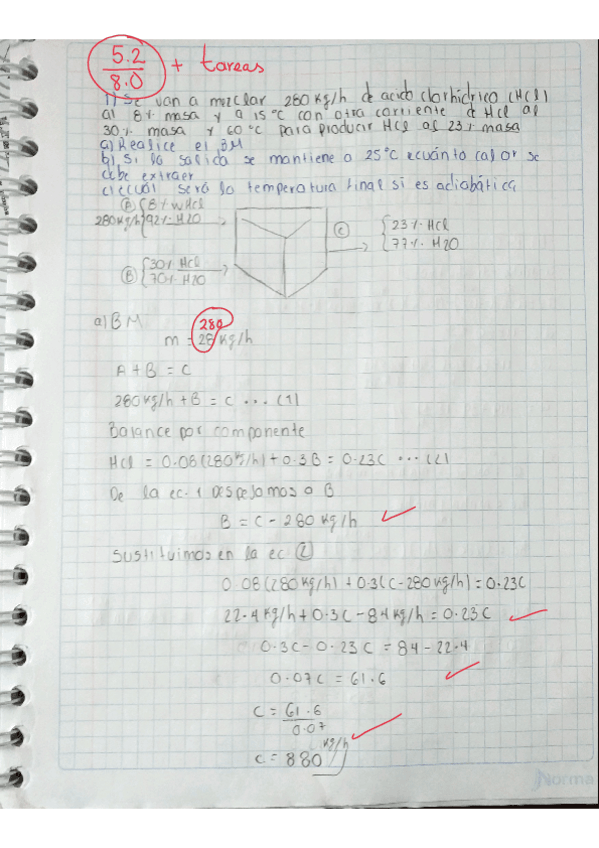 5.2
8.0 + tareas
1) Se van a mezclar 280 Kg/h de acido clorhidrico (HCl)
al 8% masa y a 15°C con otra corriente de HCl al
30% masa y 60°C para producir HCl al 23% masa
a) Realice el BM
b) Si la salida se mantiene a 25°C ¿cuánto calor se
debe extraer
c) ¿cuál será la temperatura final si es adiobática
Ⓐ 8% w HCl
280kg/h 92% H2O
Ⓒ 23% HCl
77% H2O
Ⓑ 30% HCl
70% H2O
a) BM
280
m = 28 Kg/h
A + B = C
280 kg/h + B = C ... (1)
Balance por componente
HCl = 0.08(280 kg/h) + 0.3B = 0.23C ... (2)
De la ec. 1 Despejamos a B
B = C - 280 kg/h
Sustituimos en la ec ②
0.08(280 kg/h) + 0.3(C - 280 kg/h) = 0.23C
22.4 kg/h + 0.3C - 84 kg/h = 0.23C
0.3C - 0.23C = 84 - 22.4
0.07C = 61.6
C = 61.6
0.07
C = 880 kg/h
Norma